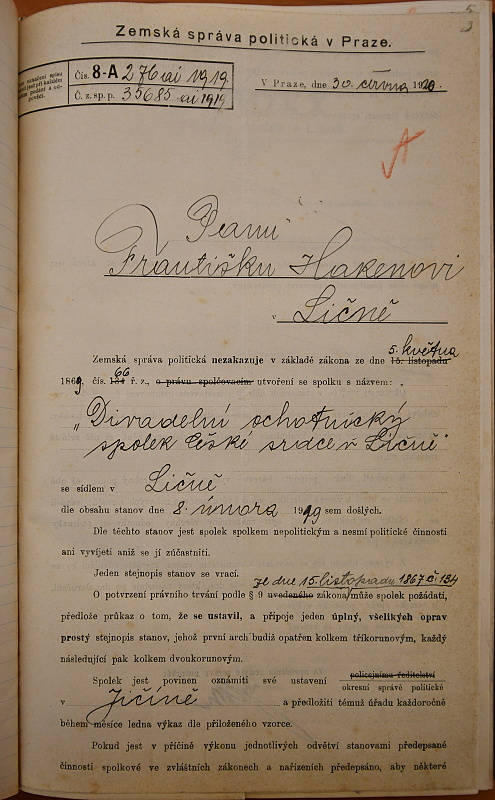 Zemská správa politická v Praze.
Čís. 8-A 276 ai 1919.
Č. z. sp. p. 35685 ai 1919
V Praze, dne 30. června 1920.
A
Panu
Františku Hakenovi
v Ličně
Zemská správa politická nezakazuje v základě zákona ze dne 15. listopadu 5. května
1869, čís. 134 66 ř. z., o právu spolčovacím utvoření se spolku s názvem:
„Divadelní ochotnický
spolek České srdce v Ličně"
se sídlem v Ličně
dle obsahu stanov dne 8. února 1919 sem došlých.
Dle těchto stanov jest spolek spolkem nepolitickým a nesmí politické činnosti
ani vyvíjeti aniž se jí zúčastniti.
Jeden stejnopis stanov se vrací.
ze dne 15. listopadu 1867 č. 134
O potvrzení právního trvání podle § 9 uvedeného zákona může spolek požádati,
předlože průkaz o tom, že se ustavil, a připoje jeden úplný, všelikých oprav
prostý stejnopis stanov, jehož první arch budiž opatřen kolkem tříkorunovým, každý
následující pak kolkem dvoukorunovým.
Spolek jest povinen oznámiti své ustavení policejnímu ředitelství
okresní správě politické
v Jičíně a předložiti témuž úřadu každoročně
během měsíce ledna výkaz dle přiloženého vzorce.
Pokud jest v příčině výkonu jednotlivých odvětví stanovami předepsané
činnosti spolkové ve zvláštních zákonech a nařízeních předepsáno, aby některé